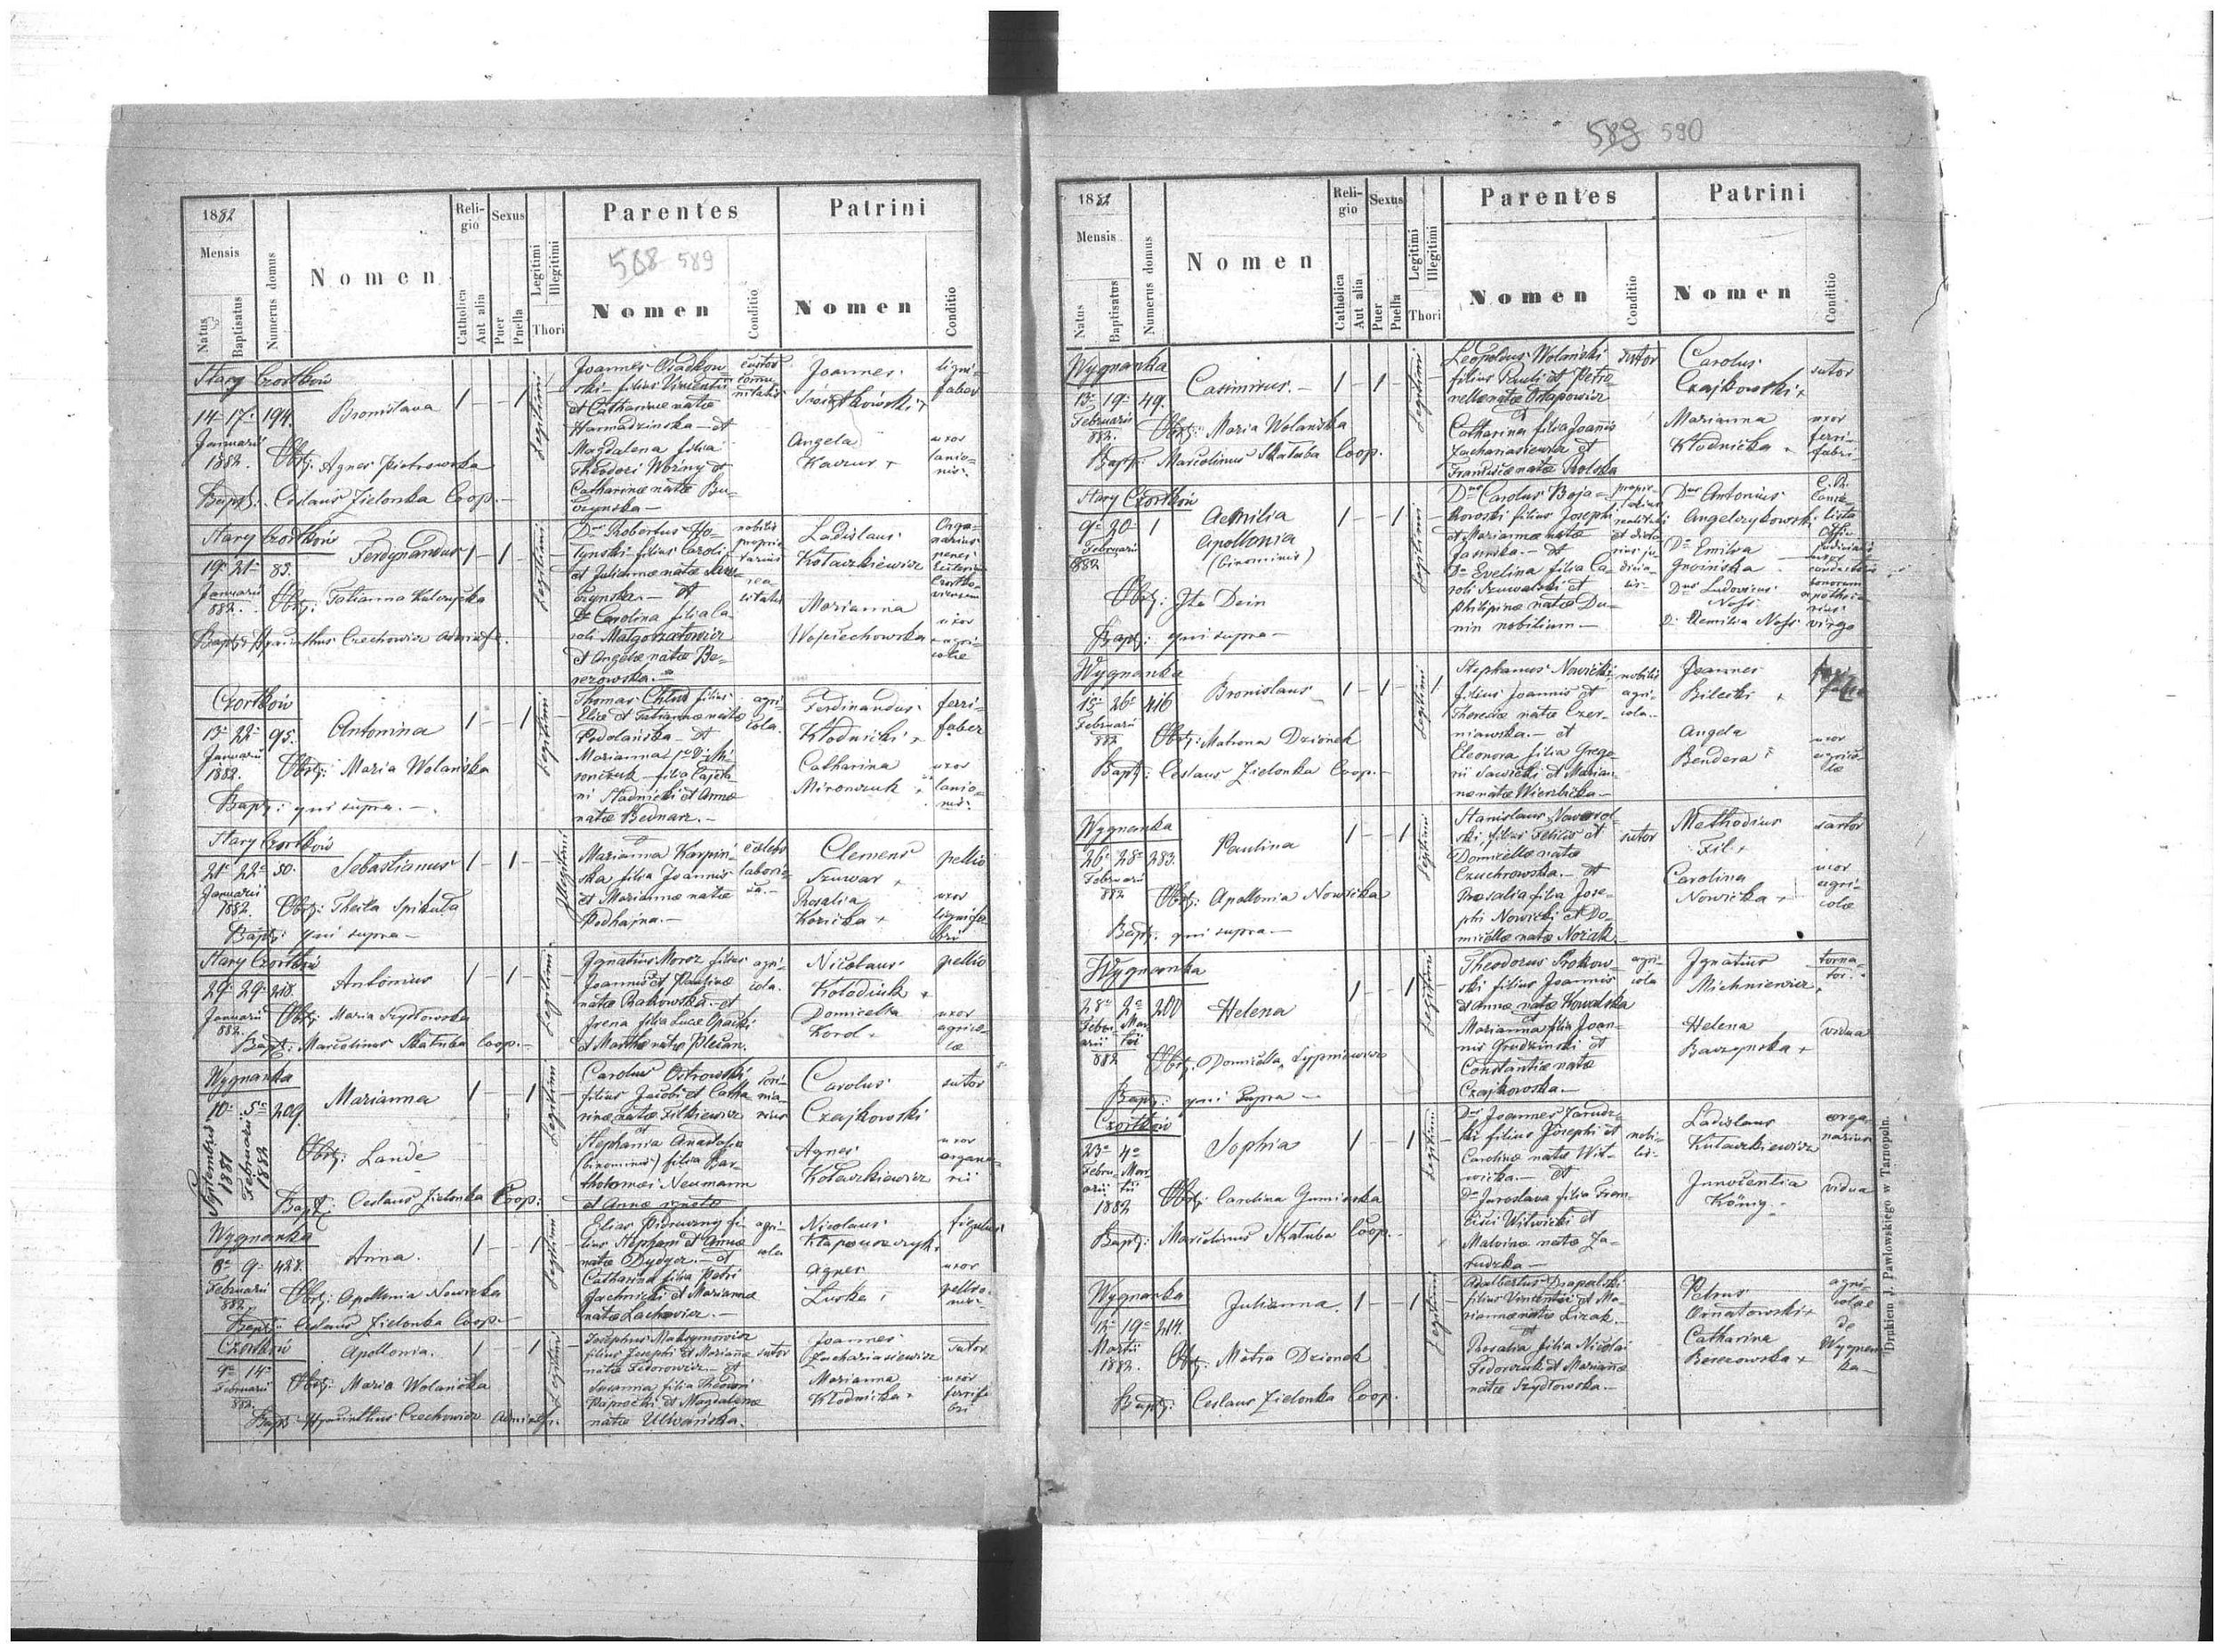 1882
Mensis
Natus
Baptisatus
Numerus domus
Nomen
Religio
Catholica
Aut alia
Sexus
Puer
Puella
Legitimi
Illegitimi
Thori
Parentes
568 589
Nomen
Conditio
Patrini
Nomen
Conditio
Stary Czortków
14 17 194
Januarii
1882.
Bronislava
Obst: Agnes Piotrowska
Bapt: Ceslaus Zielonka Coop.
Legitimi
Joannes
ski filius Vincentii
et Catharinae natae
Harmadzinska et
Magdalena filia
Theodori Woźny et
Catharinae natae Bu-
czynska
custos
commu-
nitatis
Joannes
Angela
ligni-
faber
uxor
lanio-
nis
Stary Czortków
19 21 83.
Januarii
882.
Ferdynandus
Obst: Tatianna
Bapt: Hyacinthus Czechowicz
Legitimi
Robertus Ho-
lynski filius Caroli
et Juliannae natae
et
Carolina filia Ca-
roli Malgorzatowicz
et Angelae natae Be-
rezowska.
nobilis
proprie-
tarius
rea-
litatis
Ladislaus
Kotaszkiewicz
Marianna
Wojciechowska
Orga-
narius
penes
uxor
agri-
colae
Czortków
13 22 95.
Januarii
1882.
Antonina
Obst: Maria Wolańska
Bapt: qui supra.
Legitimi
Thomas Chlud filius
Eliae et Tatiannae natae
Podolańska et
Marianna
filia Cajeta-
ni Stadnicki et Annae
natae Bednarz.
agri-
cola.
Ferdinandus
Kłodnicki +
Catharina
Mironczuk +
ferri-
faber
uxor
lanio-
nis
Stary Czortków
21 22 50.
Januarii
1882.
Sebastianus
Obst: Thecla Spikuła
Bapt: qui supra
Illegitimi
Marianna Karpiń-
ska filia Joannis
et Mariannae natae
Podhajna.
coelebs
labori-
Clemens
Szuwar +
Rosalia
Kozicka +
pellio
uxor
lignifa-
bri
Stary Czortków
29 29 218.
Januarii
882.
Antonius
Obst: Maria Szydłowska
Bapt: Marcelinus Skałuba Coop.
Legitimi
Ignatius Moroz filius
Joannis et Paulinae
natae Bakowska et
Irena filia Lucae Opacki
et Marthae natae Pleban.
agri-
cola.
Nicolaus
Kołodiuk +
Domicella
Korol.
pellio
uxor
agrico-
lae
Wygnanka
10 5 209.
Septembris
1881
Februarii
1882
Marianna
Obst: Lande
Bapt: Ceslaus Zielonka Coop.
Legitimi
Carolus Ostrowski
filius Jacobi et Catha-
rinae natae Zilkiewicz
et
Stephania Anastasia
(binominis) filia Bar-
tholomaei Neumann
et Annae
Carolus
Czajkowski
Agnes
Kotaszkiewicz
sutor
uxor
organa-
rii
Wygnanka
8 9 428.
Februarii
882.
Anna.
Obst: Apollonia Nowicka
Bapt: Ceslaus Zielonka Coop.
Legitimi
Elias Pidruczny fi-
lius Stephani et Annae
natae Dydyer. et
Catharina filia Petri
Jachnicki et Mariannae
natae Lachowicz.
agri-
cola
Nicolaus
Agnes
figulus
uxor
pellio-
nis
Czortków
9 14
Februarii
882.
Apollonia.
Obst: Maria Wolańska
Bapt: Hyacinthus Czechowicz
Legitimi
Josephus Maksymowicz
filius Josephi et Mariannae
natae Fedorowicz. et
Susanna filia Theodori
Paprocki et Magdalenae
natae Ulwańska.
sutor
Joannes
Zachariasiewicz
Marianna
Kłodnicka +
sutor
uxor
ferrifa-
bri
589 590
1882
Mensis
Natus
Baptisatus
Numerus domus
Nomen
Religio
Catholica
Aut alia
Sexus
Puer
Puella
Legitimi
Illegitimi
Thori
Parentes
Nomen
Conditio
Patrini
Nomen
Conditio
Wygnanka
13 19 49.
Februarii
882.
Casimirus.
Obst: Maria Wolańska
Bapt: Marcelinus Skałuba Coop.
Legitimi
Leopoldus Wolański
filius Pauli et Petro-
nellae natae Ostapowicz
et
Catharina filia Joannis
Zachariasiewicz et
Franciscae natae Rolska
sutor
Carolus
Czajkowski +
Marianna
Kłodnicka +
sutor
uxor
ferri-
fabri
Stary Czortków
9 20 1
Februarii
882
Aemilia
Apollonia
(binominis)
Obst: Ita Dein
Bapt: qui supra
Legitimi
Carolus Boja-
rowski filius Josephi
et Mariannae natae
Jasinska. et
Evelina filia Ca-
roli Szuwalski et
Philipinae natae Du-
nin nobilium
Antonius
Angelczykowski
Emilia
Gnoinska
Ludovicus
Noss
Aemilia Noss
uxor
virgo
Wygnanka
15 26 416
Februarii
882
Bronislaus
Obst: Matrona Dzionek
Bapt: Ceslaus Zielonka Coop.
Legitimi
Stephanus Nowicki
filius Joannis et
Theresiae natae Czer-
niawska. et
Eleonora filia Grego-
rii Sawicki et Marian-
nae natae Wierzbicka
nobilis
agri-
cola
Joannes
Bilecki +
Angela
Bendera
uxor
agrico-
lae
Wygnanka
26 28 283.
Februarii
882
Paulina
Obst: Apollonia Nowicka
Bapt: qui supra.
Legitimi
Stanislaus Nawrol-
ski filius Felicis et
Domicellae natae
Czuchrowska. et
Rosalia filia Jose-
phi Nowicki et Do-
micellae natae Noziak.
sutor
Methodius
Fil +
Carolina
Nowicka +
sartor
uxor
agri-
colae
Wygnanka
28 2 200
Febru- Mar-
arii tii
882
Helena
Obst. Domicella Lypniewicz
Bapt: qui supra
Legitimi
Theodorus Prokow-
ski filius Joannis
et Annae natae Kowalska
et
Marianna filia Joan-
nis Grudzinski et
Constantiae natae
Czajkowska.
agri-
cola
Ignatius
Michniewicz +
Helena
Baczynska +
torna-
tor.
vidua
Czortków
23 4
Febru- Mar-
arii tii
1882
Sophia
Obst: Carolina Guminska
Bapt: Marcelinus Skałuba Coop.
Legitimi
Joannes Zarudz-
ki filius Josephi et
Carolinae natae Wit-
wicka. et
Jaroslava filia Fran-
cisci Witwicki et
Malvinae natae Za-
rudzka
nobi-
lis
Ladislaus
Kutaszkiewicz
Innocentia
König
orga-
narius
vidua
Wygnanka
12 19 214.
Martii
1882.
Julianna.
Obst: Motra Dzionek
Bapt: Ceslaus Zielonka Coop.
Legitimi
Adalbertus Drapalski
filius Vincentii et Ma-
riannae natae Lizak.
et
Rosalia filia Nicolai
Fedorczuk et Mariannae
natae Szydłowska.
Petrus
Ornatowski +
Catharina
Berezowska +
agri-
colae
de
Wygnan-
ka
Drukiem J. Pawłowskiego w Tarnopolu.